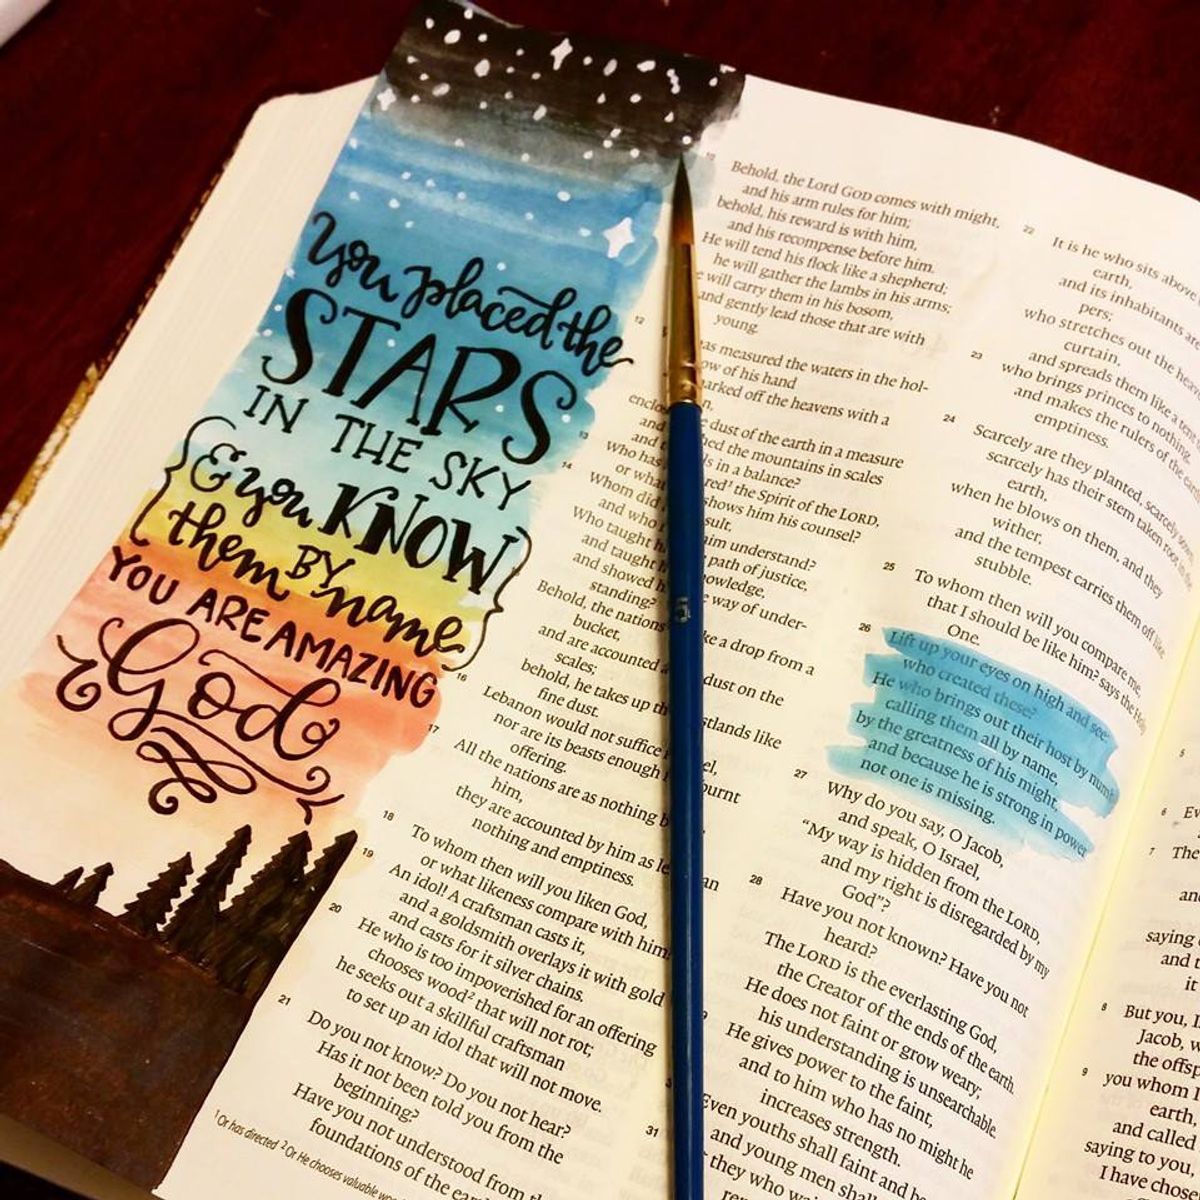 You placed the
STARS
IN THE SKY
& you KNOW
them BY name
YOU ARE AMAZING
God
10
Behold, the Lord GOD comes with might,
and his arm rules for him;
behold, his reward is with him,
and his recompense before him.
He will tend his flock like a shepherd;
he will gather the lambs in his arms;
will carry them in his bosom,
and gently lead those that are with
young.
12
as measured the waters in the hol-
ow of his hand
arked off the heavens with a
enclo
dust of the earth in a measure
and
ed the mountains in scales
and
s in a balance?
13
who has
red¹ the Spirit of the LORD,
or what
shows him his counsel?
14
Whom did
sult,
and who
im understand?
Who taught h
path of justice,
and taught h
owledge,
and showed h
e way of under-
standing?
Behold, the nations
ke a drop from a
bucket,
and are accounted
dust on the
scales;
behold, he takes up th
stlands like
fine dust.
16
Lebanon would not suffice
el,
nor are its beasts enough
burnt
offering.
17
All the nations are as nothing b
him,
they are accounted by him as le
an
nothing and emptiness.
18
To whom then will you liken God,
or what likeness compare with him
19
An idol! A craftsman casts it,
and a goldsmith overlays it with gold
and casts for it silver chains.
20
He who is too impoverished for an offering
chooses wood² that will not rot;
he seeks out a skillful craftsman
to set up an idol that will not move.
21
Do you not know? Do you not hear?
Has it not been told you from the
beginning?
Have you not understood from th
foundations of the ear
¹ Or has directed ² Or He chooses valuable wo
5
22
It is he who sits above
earth,
and its inhabitants are
pers;
who stretches out the hea
curtain,
and spreads them like a ten
23
who brings princes to nothing,
and makes the rulers of the ea
emptiness.
24
Scarcely are they planted, scarcely sown
scarcely has their stem taken root in
earth,
when he blows on them, and they
wither,
and the tempest carries them off like
stubble.
25
To whom then will you compare me,
that I should be like him? says the Holy
One.
26
Lift up your eyes on high and see:
who created these?
He who brings out their host by numb
calling them all by name,
by the greatness of his might,
and because he is strong in power
not one is missing.
27
Why do you say, O Jacob,
and speak, O Israel,
"My way is hidden from the LORD,
and my right is disregarded by my
God"?
28
Have you not known? Have you not
heard?
The LORD is the everlasting God,
the Creator of the ends of the earth.
He does not faint or grow weary;
his understanding is unsearchable.
He gives power to the faint,
and to him who has no might he
increases strength.
Even youths shall faint and be
31
and young men shall
they who wa
5
6
Ev
7
The
an
saying
and t
it
8
But you, I
Jacob, w
the offsp
9
you whom I
earth,
and called
saying to you,
I have chos